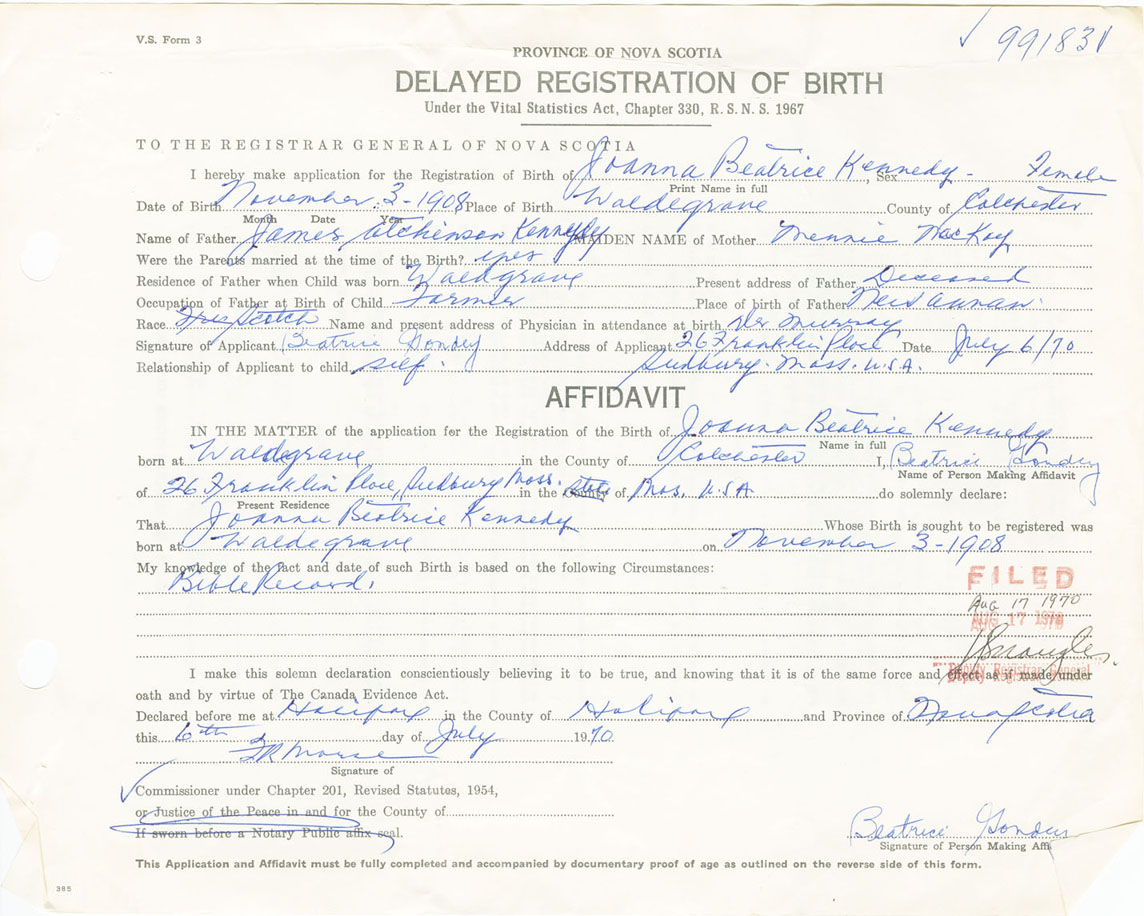 V.S. Form 3
✓ 991831
PROVINCE OF NOVA SCOTIA
DELAYED REGISTRATION OF BIRTH
Under the Vital Statistics Act, Chapter 330, R.S.N.S. 1967
TO THE REGISTRAR GENERAL OF NOVA SCOTIA
I hereby make application for the Registration of Birth of Joanna Beatrice Kennedy - , Sex Female
Print Name in full
Date of Birth November 3-1908 Place of Birth Waldegrave County of Colchester
Month Date Year
Name of Father James Kennedy MAIDEN NAME of Mother Mennie MacKay
Were the Parents married at the time of the Birth? yes
Residence of Father when Child was born Waldgrave Present address of Father Deceased
Occupation of Father at Birth of Child Farmer Place of birth of Father New Annan
Race Scotch Name and present address of Physician in attendance at birth Dr Murray
Signature of Applicant Beatrice Address of Applicant 26 Franklin Place Date July 6/70
Relationship of Applicant to child self. Sudbury. Mass. U.S.A.
AFFIDAVIT
IN THE MATTER of the application for the Registration of the Birth of Joanna Beatrice Kennedy
Name in full
born at Waldegrave in the County of Colchester I, Beatrice
Name of Person Making Affidavit
of 26 Franklin Place, Sudbury Mass. in the County State of Mas. U.S.A do solemnly declare:
Present Residence
That Joanna Beatrice Kennedy Whose Birth is sought to be registered was
born at Waldegrave on November 3-1908
My knowledge of the fact and date of such Birth is based on the following Circumstances:
Bible Record.
FILED
Aug 17 1970
AUG 17 1970
Deputy Registrar General
I make this solemn declaration conscientiously believing it to be true, and knowing that it is of the same force and effect as if made under
oath and by virtue of The Canada Evidence Act.
Declared before me at Halifax in the County of Halifax and Province of Nova Scotia
this 6th day of July 1970.
Signature of
✓ Commissioner under Chapter 201, Revised Statutes, 1954,
or Justice of the Peace in and for the County of
If sworn before a Notary Public affix seal.
Beatrice
Signature of Person Making Affi
This Application and Affidavit must be fully completed and accompanied by documentary proof of age as outlined on the reverse side of this form.
385